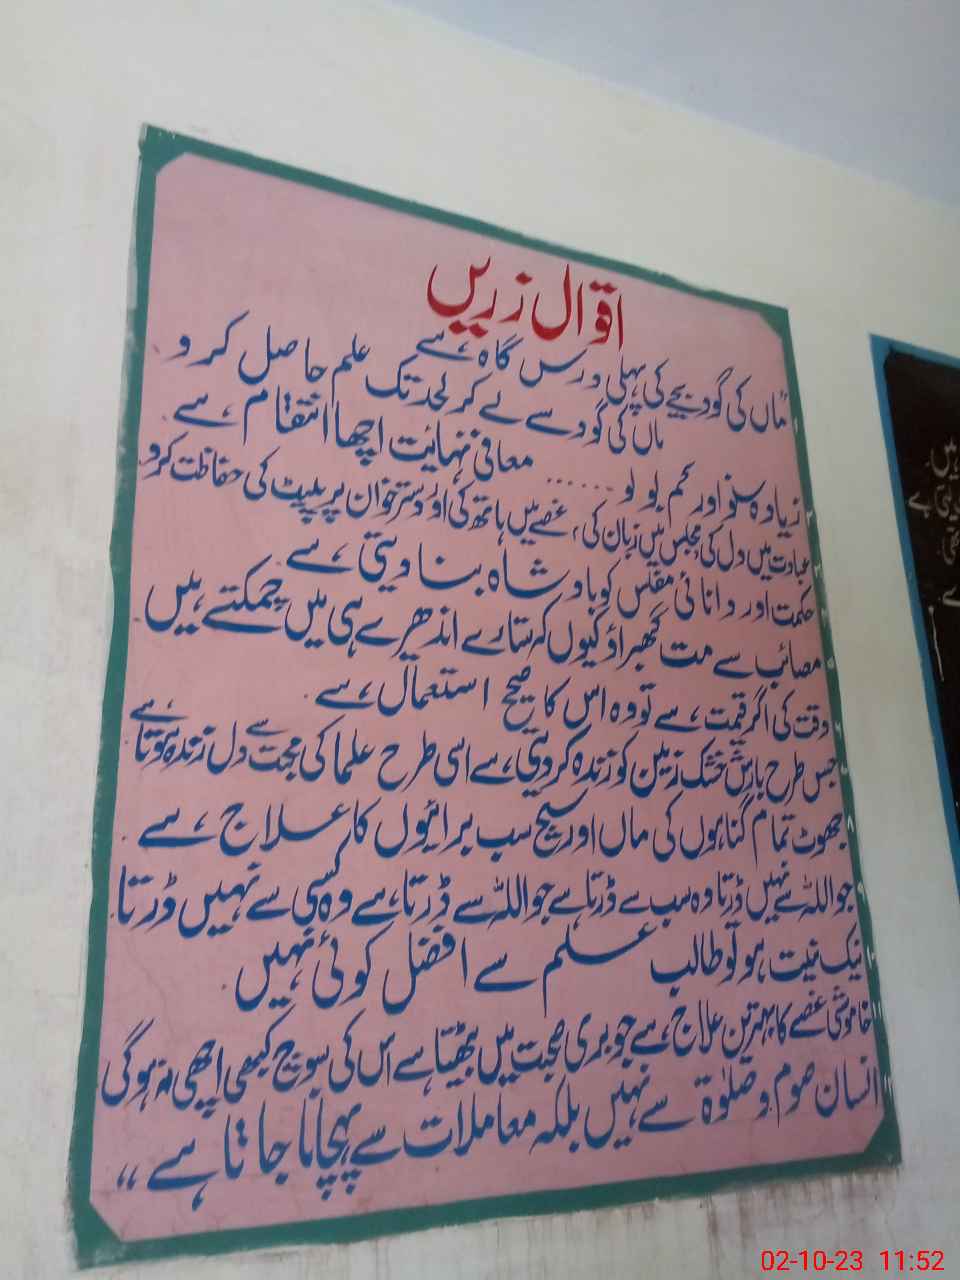 اقوال زریں
"ماں کی گود بچے کی پہلی درس گاہ ہے
۱ ماں کی گود سے لے کر لحد تک علم حاصل کرو
۲ زیادہ سنو اور کم بولو ...... معافی نہائیت اچھا انتقام ہے
۳ عبادت میں دل کی، مجلس میں زبان کی، غصے میں ہاتھ کی اور دسترخوان پر پلیٹ کی حفاظت کرو
۴ حکمت اور دانائی مفلس کو بادشاہ بنا دیتی ہے
۵ مصائب سے مت گھبراؤ کیوں کہ ستارے اندھیرے ہی میں چمکتے ہیں
۶ وقت کی اگر قیمت ہے تو وہ اس کا صحیح استعمال ہے
۷ جس طرح بارش خشک زمین کو زندہ کر دیتی ہے اسی طرح علما کی محبت سے دل زندہ ہوتا ہے
۸ جھوٹ تمام گناہوں کی ماں اور سچ سب برائیوں کا علاج ہے
۹ جو اللہ سے نہیں ڈرتا وہ سب سے ڈرتا ہے جو اللہ سے ڈرتا ہے وہ کسی سے نہیں ڈرتا
۱۰ نیک نیت ہو تو طالب علم سے افضل کوئی نہیں
۱۱ خاموشی غصے کا بہترین علاج ہے جو بری صحبت میں بیٹھتا ہے اس کی سوچ کبھی اچھی نہ ہوگی
۱۲ انسان صوم و صلوٰۃ سے نہیں بلکہ معاملات سے پہچانا جاتا ہے "
02-10-23 11:52